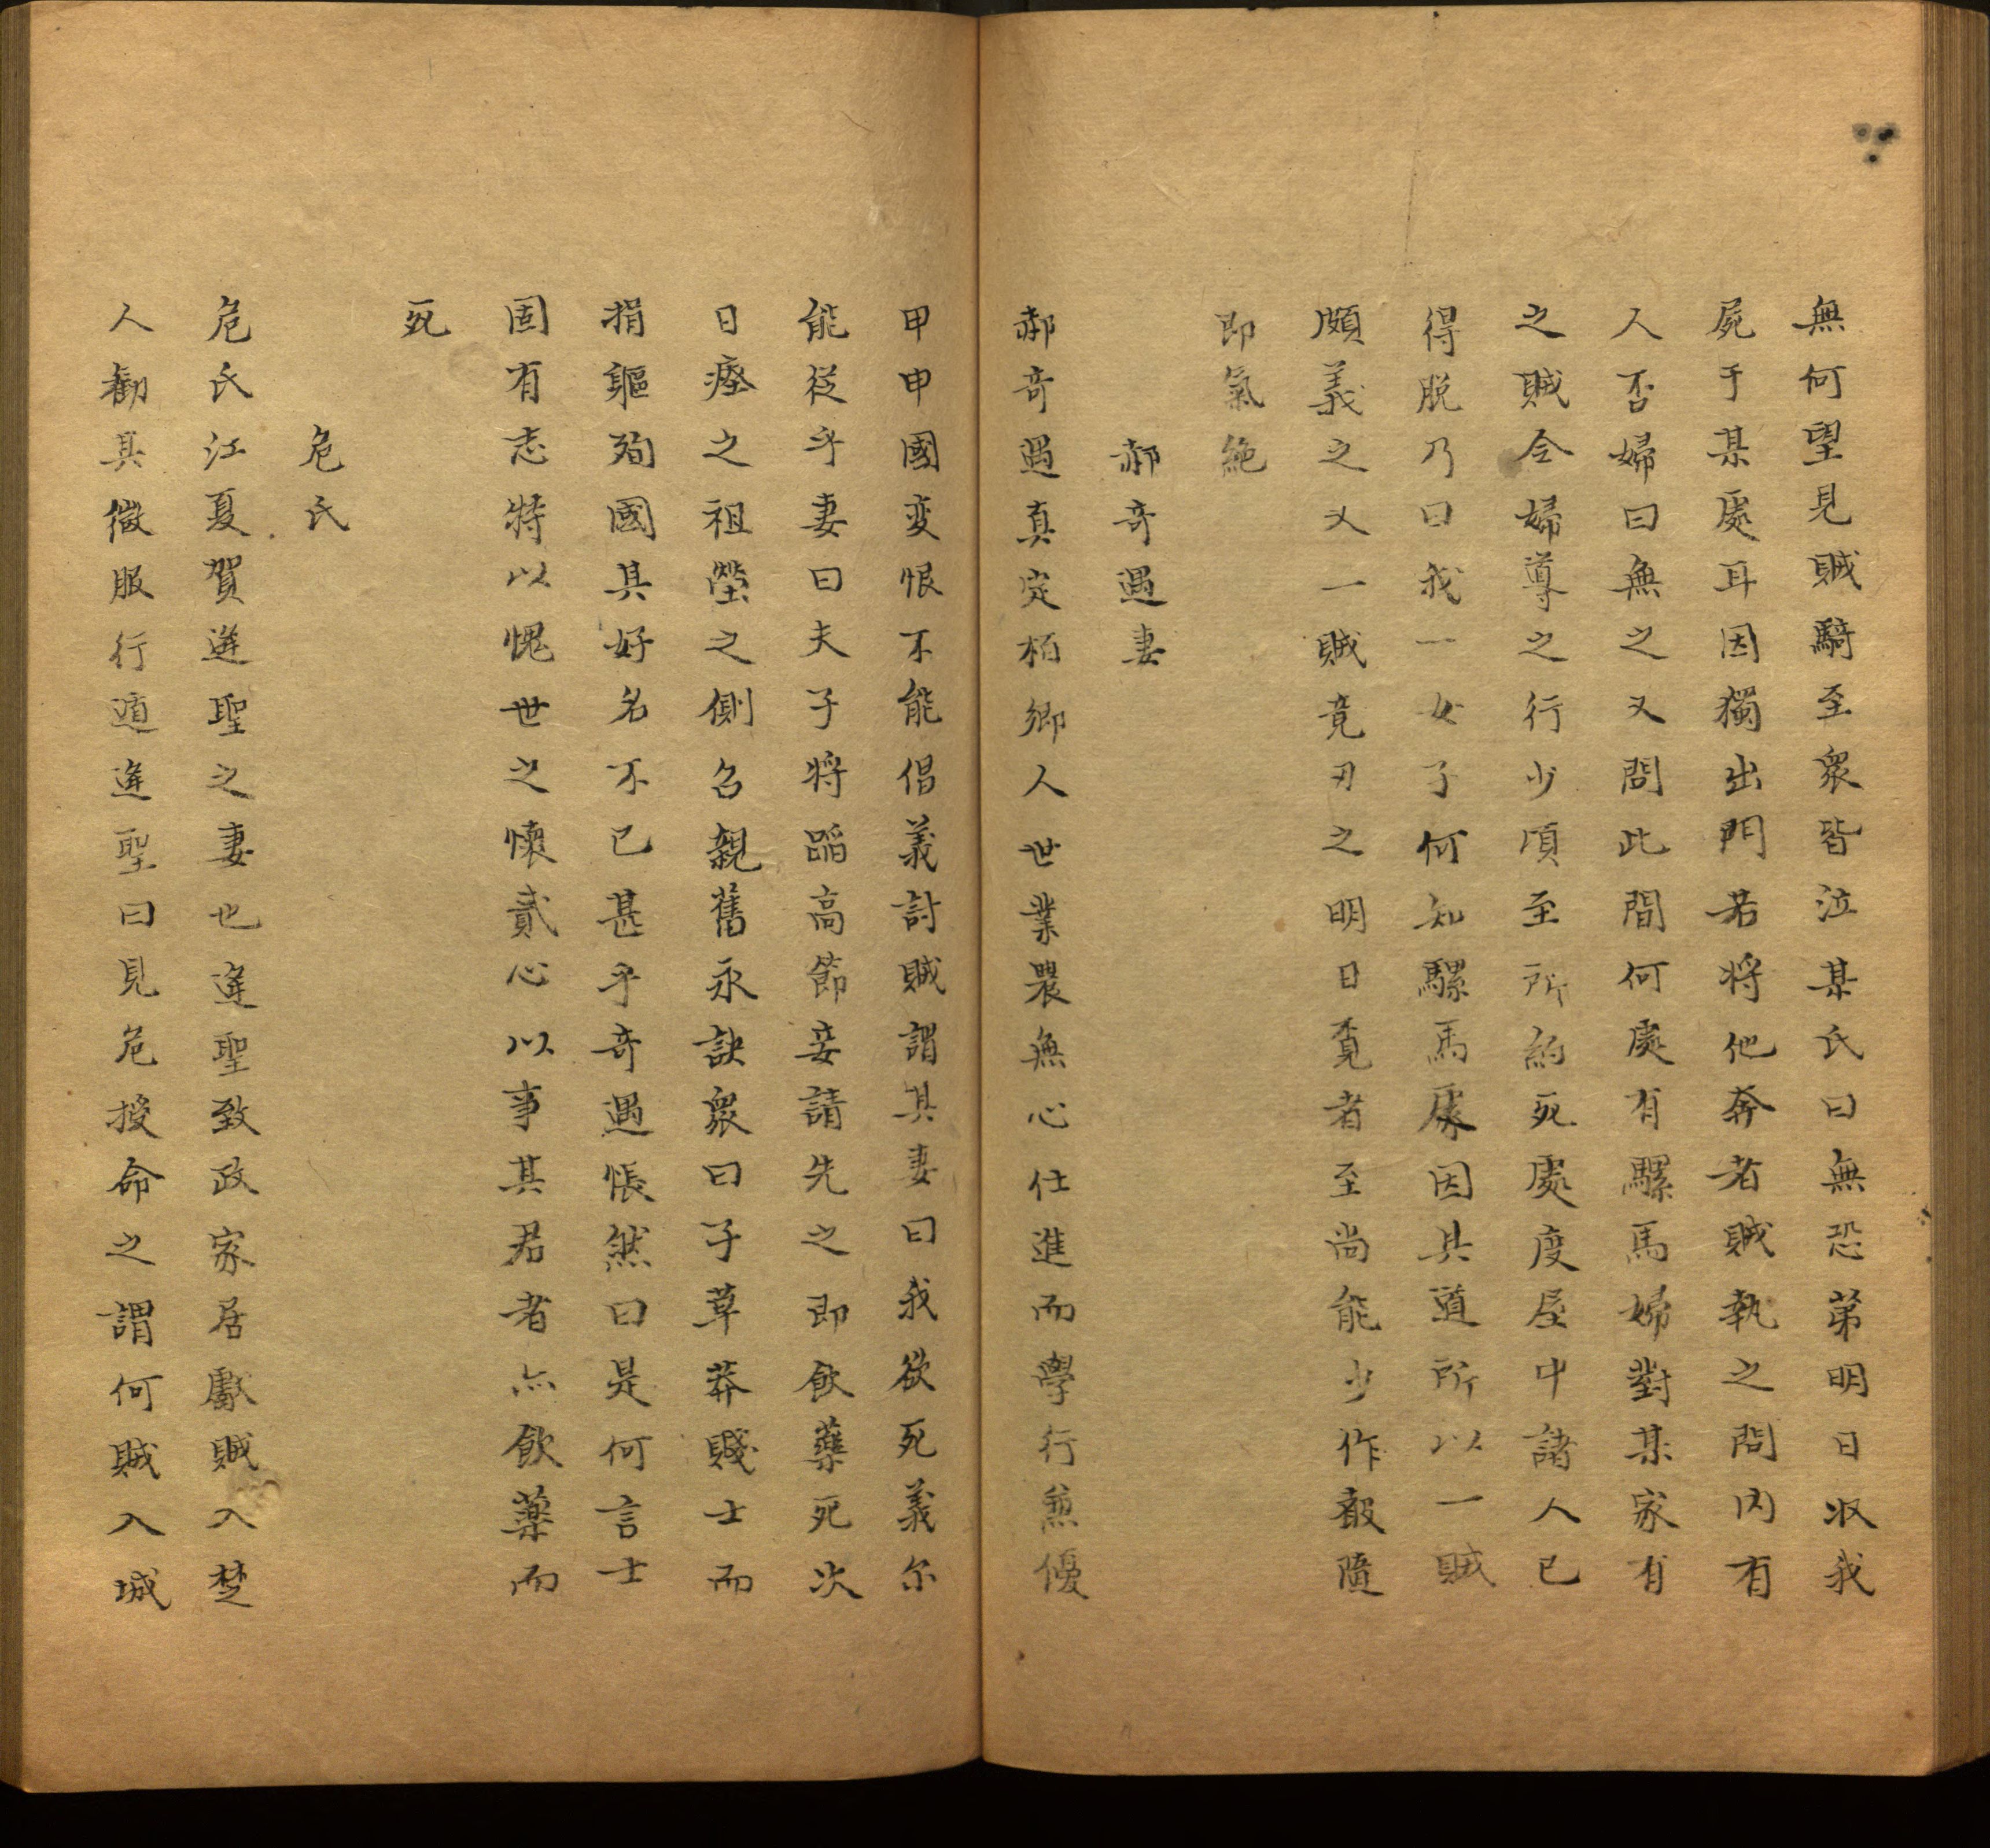 無何望見賊騎至衆皆泣某氏曰無恐第明日収我
屍于某處耳因獨出門若將他奔者賊執之問內有
人否婦曰無之又問此間何處有騾馬婦對某家有
之賊令婦導之行少頃至所約死處度屋中諸人已
得脱乃曰我一女子何知騾馬處因具道所以一賊
頗義之又一賊竟刃之明日覓者至尚能少作報隨
即氣絶
郝奇遇妻
郝奇遇真定栢鄉人世業農無心仕進而學行兼優
甲申國変恨不能倡義討賊謂其妻曰我欲死義尔
能從乎妻曰夫子將蹈高節妾請先之即飲藥死次
日瘞之祖塋之側召親舊永訣衆曰子草莽賤士而
捐軀殉國其好名不已甚乎奇遇悵然曰是何言士
固有志特以愧世之懷貳心以事其君者亦飲藥而
死
危氏
危氏江夏賀逄聖之妻也逄聖致政家居獻賊入楚
人勸其微服行遁逄聖曰見危授命之謂何賊入城